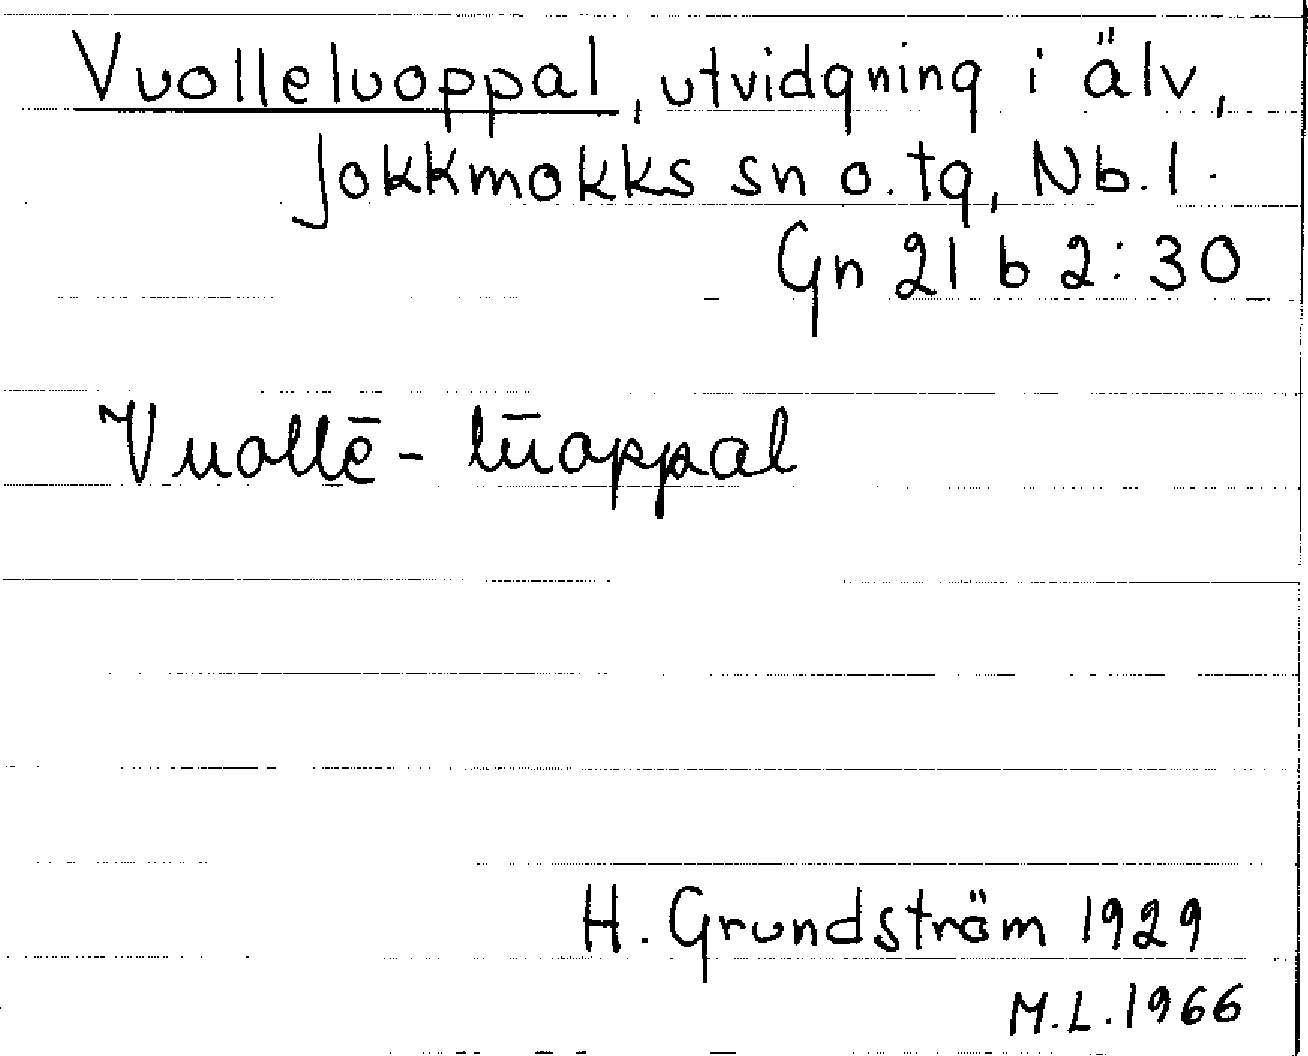 Vuolleluoppal, utvidgning i älv,
Jokkmokks sn o. tg, Nb. l.
Gn 21 b 2:30
Vuollē - lūoppal
H. Grundström 1929
M.L. 1966